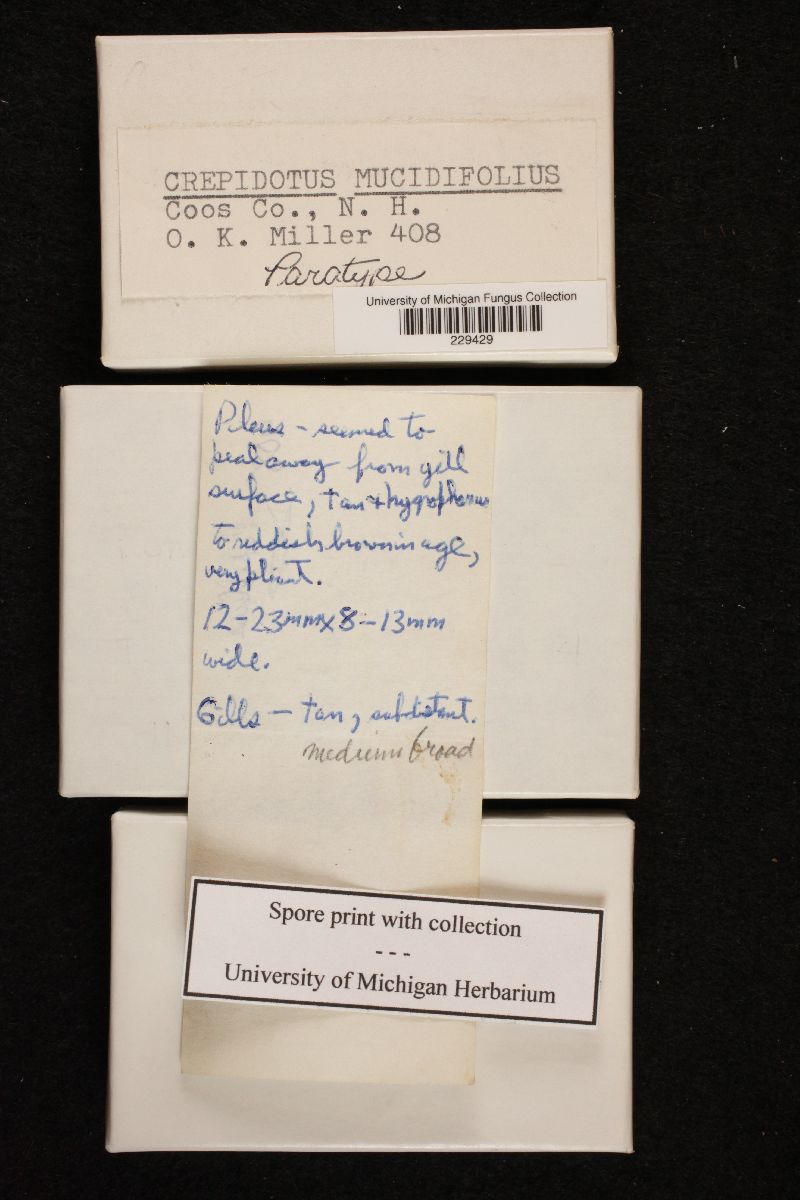 CREPIDOTUS MUCIDIFOLIUS
Coos Co., N. H.
O. K. Miller 408
Paratype
University of Michigan Fungus Collection
229429
Pileus - seemed to
peal away from gill
surface, tan + hygrophanus
to reddish brown in age,
very pliant.
12-23mm x 8-13mm
wide.
Gills - tan, subdistant.
medium broad
Spore print with collection
---
University of Michigan Herbarium